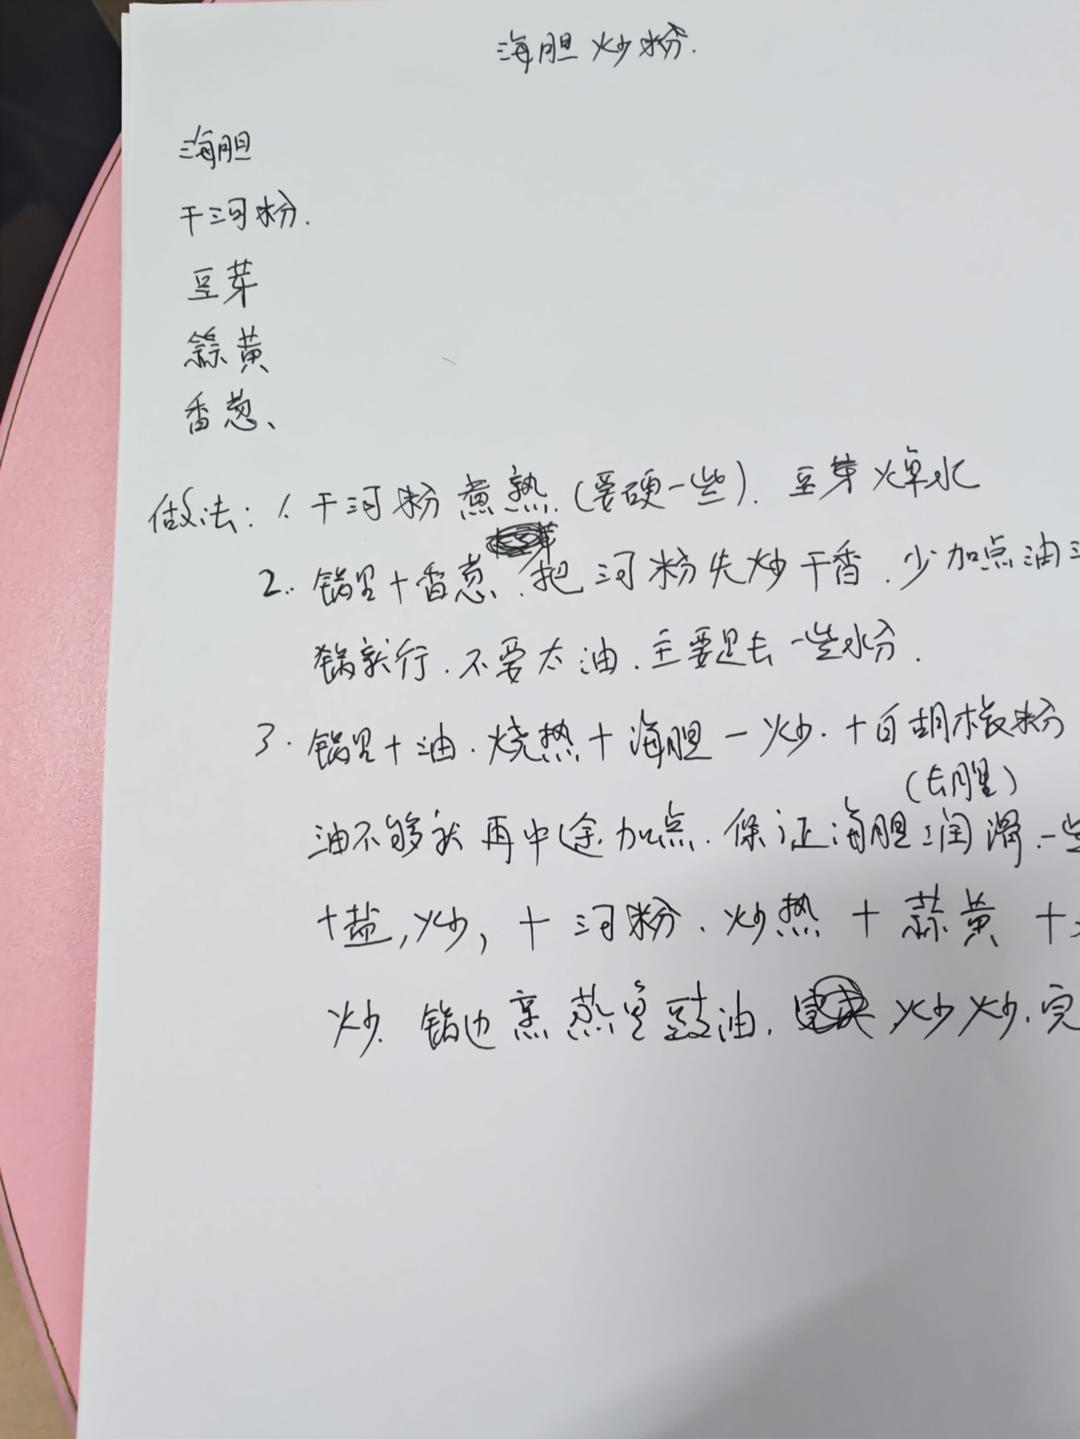 海胆炒粉.
海胆
干河粉.
豆芽
蒜黄
香葱、
做法: 1. 干河粉煮熟.(要硬一些). 豆芽焯水
2. 锅里+香葱. 把河粉先炒干香. 少加点油
锅就行. 不要太油. 主要是去一些水分.
3. 锅里+油. 烧热+海胆一炒. +白胡椒粉
(去腥)
油不够就再中途加点. 保证海胆润滑一些
+盐,炒, +河粉. 炒热+蒜黄+
炒. 锅边烹蒸鱼豉油. 炒炒. 完